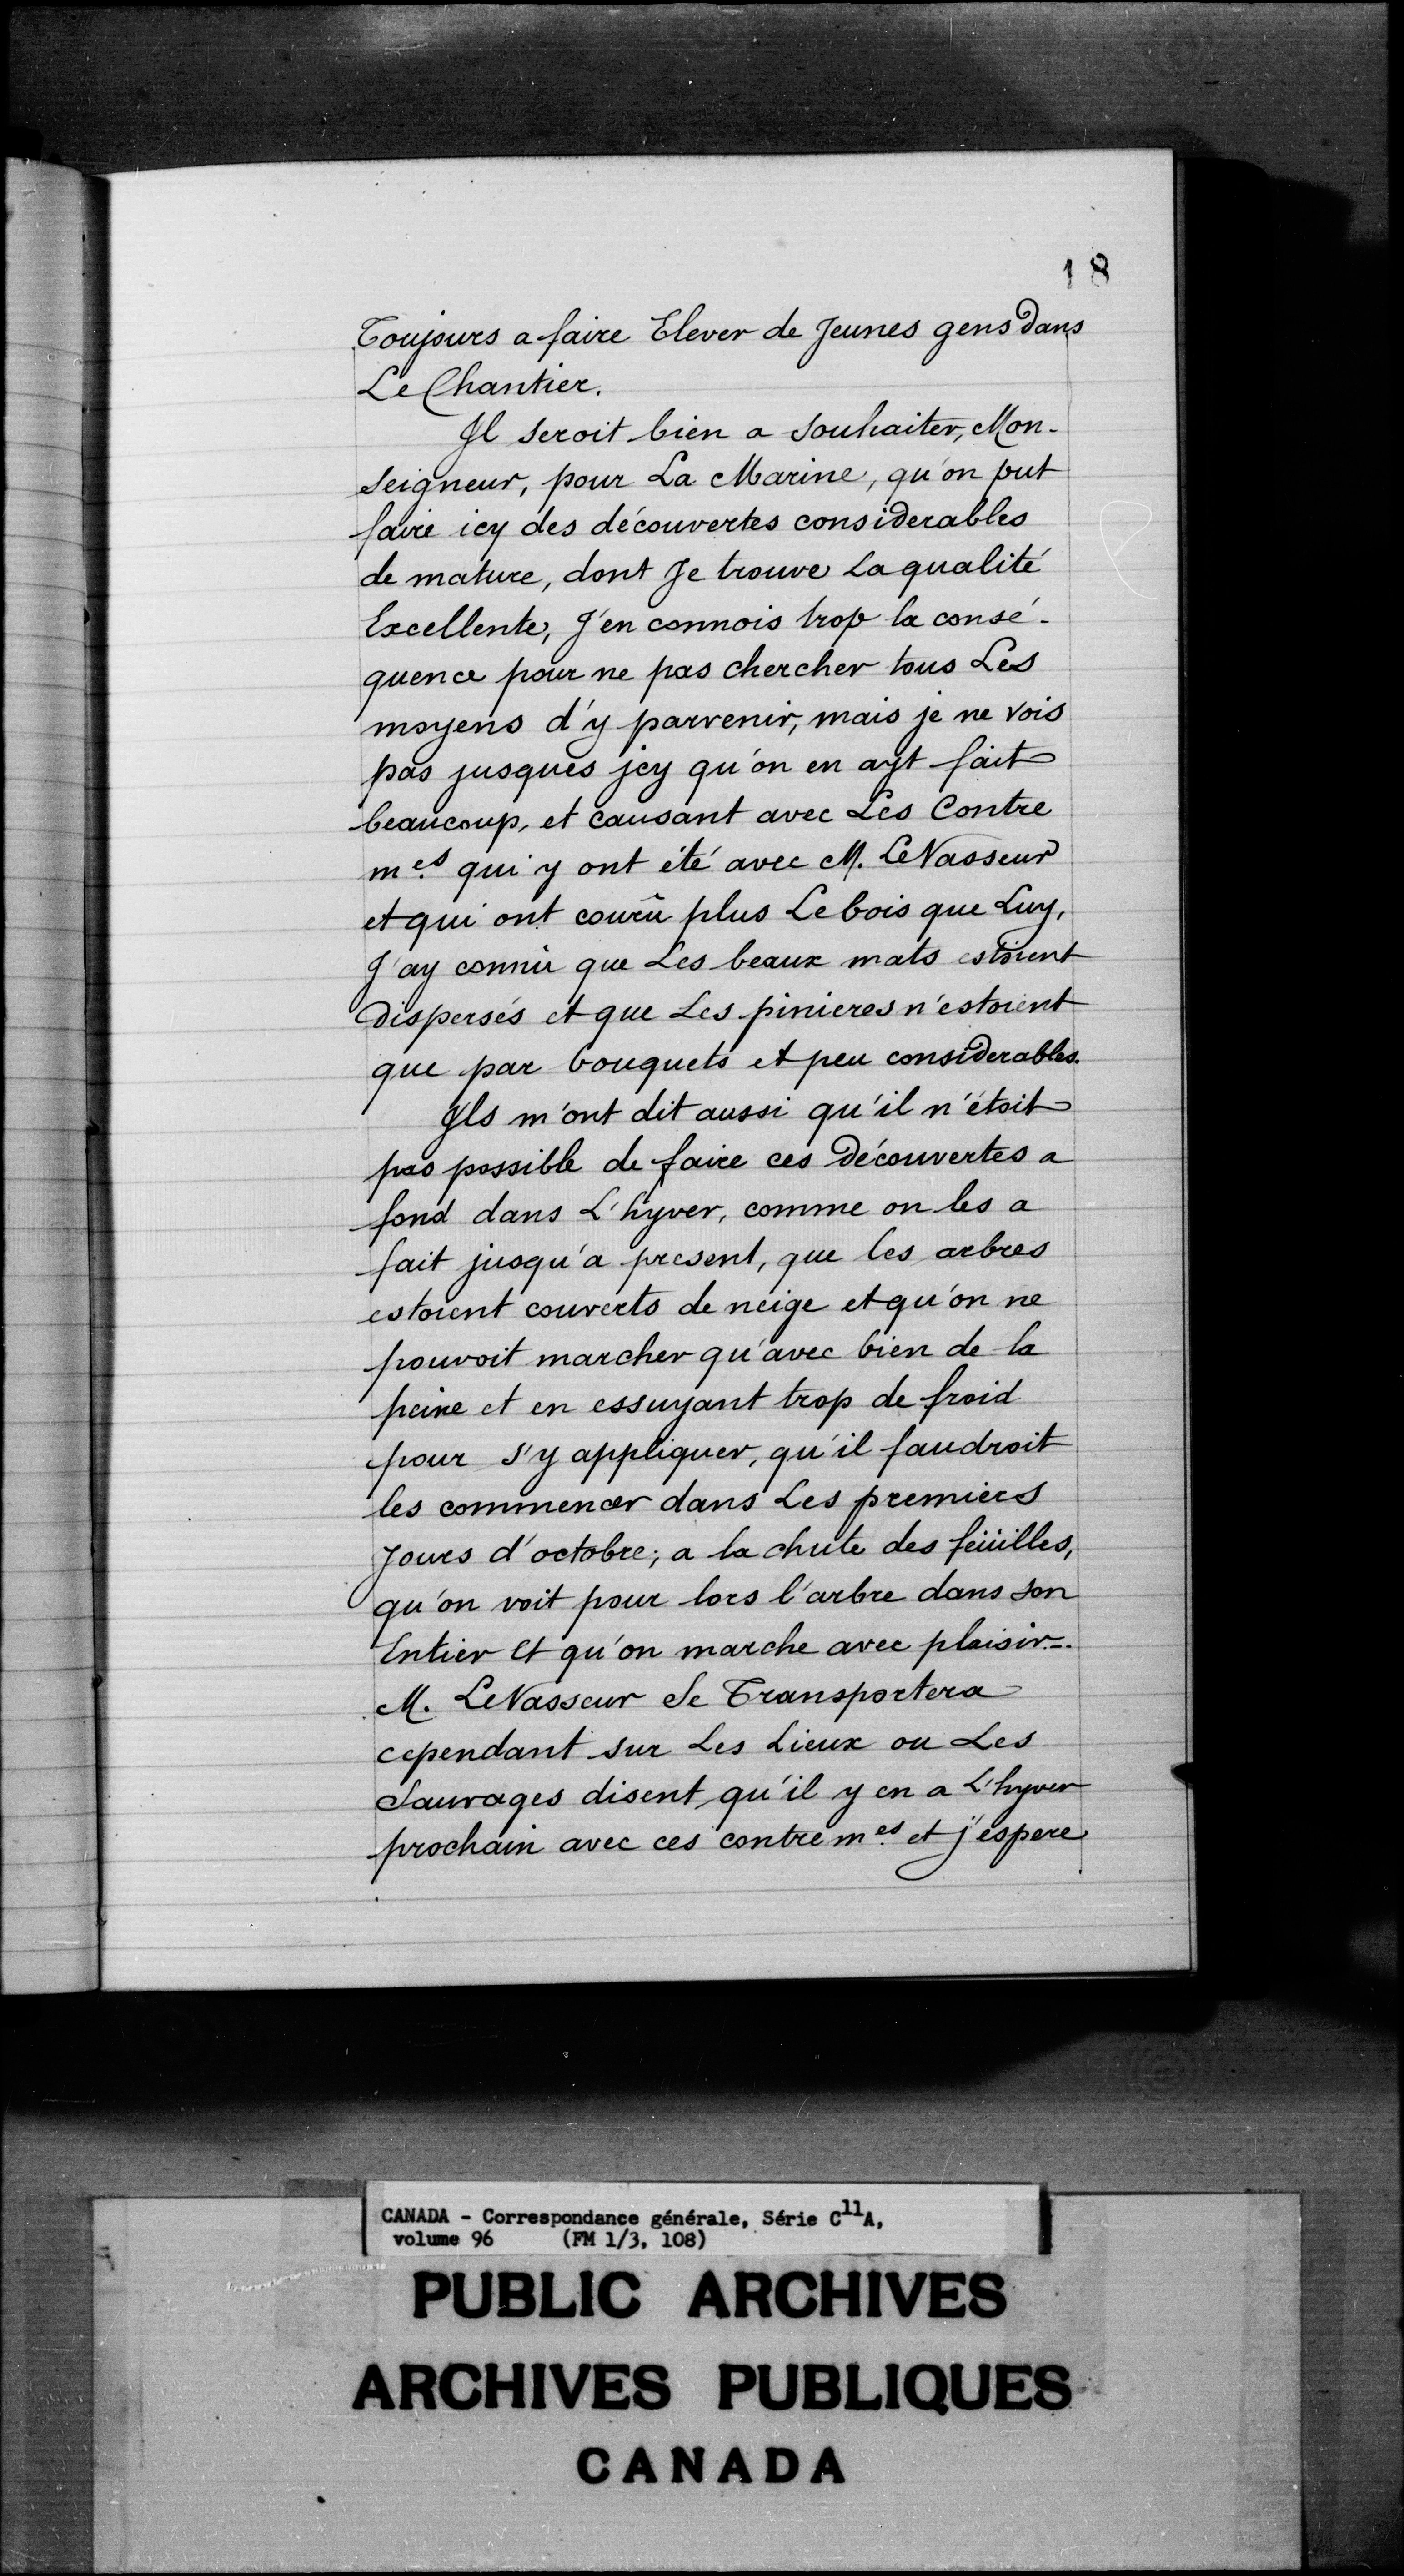 18
Toujours a faire Elever de Jeunes gens dans
Le Chantier.
Il seroit bien a souhaiter, Mon-
seigneur, pour La Marine, qu'on put
faire icy des découvertes considerables
de mature, dont Je trouve La qualité
Excellente, J'en connois trop la consé-
quence pour ne pas chercher tous Les
moyens d'y parvenir, mais je ne vois
pas jusques jcy qu'on en ayt fait
beaucoup, et causant avec Les Contre
m.es qui y ont été avec M. LeVasseur
et qui ont courû plus Le bois que Luy,
J'ay connû que Les beaux mats estoient
Dispersés et que Les pinieres n'estoient
que par bouquets et peu considerables.
Ils m'ont dit aussi qu'il n'étoit
pas possible de faire ces Découvertes a
fond dans L'hyver, comme on les a
fait jusqu'a present, que les arbres
estoient couverts de neige et qu'on ne
pouvoit marcher qu'avec bien de la
peine et en essuyant trop de froid
pour s'y appliquer, qu'il faudroit
les commencer dans Les premiers
Jours d'octobre; a la chute des feüilles,
qu'on voit pour lors l'arbre dans son
Entier Et qu'on marche avec plaisir.-
M. LeVasseur Se Transportera
cependant sur Les Lieux ou Les
Sauvages disent qu'il y en a L'hyver
prochain avec ces contre m.es et j'espere
CANADA - Correspondance générale, Série C11A,
volume 96 (FM 1/3, 108)
PUBLIC ARCHIVES
ARCHIVES PUBLIQUES
CANADA